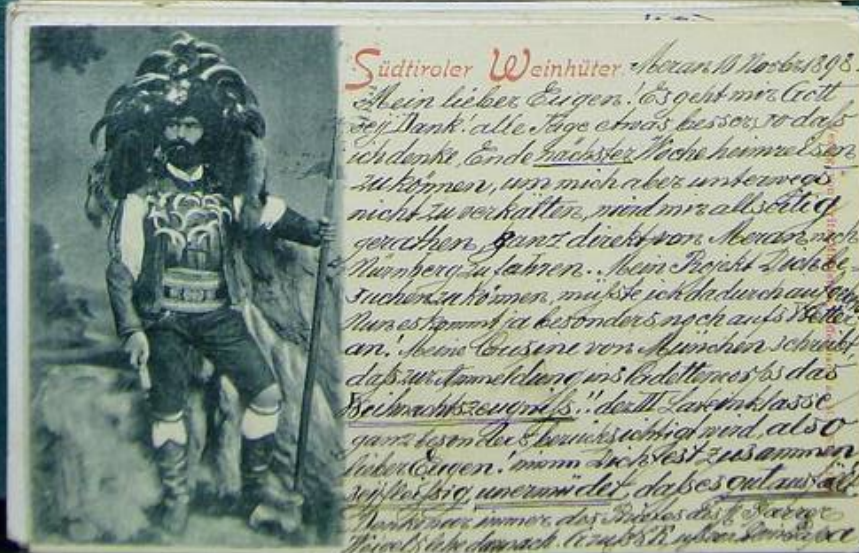 Südtiroler Weinhüter. Meran 10 Novbr 1898.
Mein lieber Eugen! Es geht mir Gott
sey Dank! alle Tage etwas besser, so daß
ich denke, Ende nächster Woche heimreisen
zu können, um mich aber unterwegs
nicht zu verkälten, wird mir allseitig
gerathen, ganz direkt von Meran nach
Nürnberg zu fahren. Mein Projekt Dich be-
suchen zu können, müßte ich dadurch aufgeben
Nun es kommt ja besonders noch aufs Wetter
an! Meine Cusine von München schreibt,
daß zur Anmeldung ins Cadettencorps das
Weihnachtszeugniß!! der III Lateinklasse
ganz besonders berücksichtigt wird, also
lieber Eugen! nimm Dich fest zusammen
sey fleißig, unermüdet, daß es gut ausfällt
immer des
lebe darnach. Papa